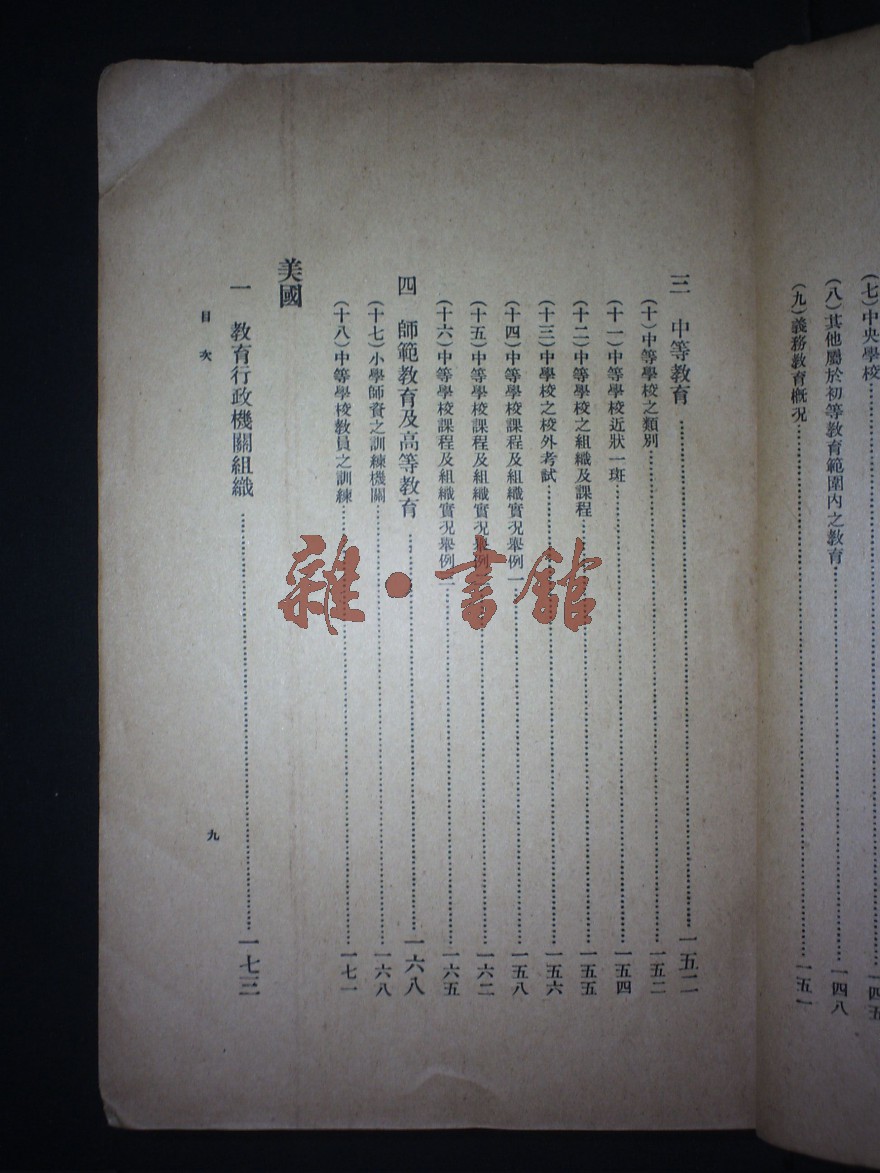 (七)中央學校……一四五
(八)其他屬於初等教育範圍內之教育……一四八
(九)義務教育概況……一五一
三 中等教育……一五二
(十)中等學校之類別……一五二
(十一)中等學校近狀一班……一五四
(十二)中等學校之組織及課程……一五五
(十三)中學校之校外考試……一五六
(十四)中等學校課程及組織實況舉例一……一五八
(十五)中等學校課程及組織實況舉例……一六二
(十六)中等學校課程及組織實況舉例……一六五
四 師範教育及高等教育……一六八
(十七)小學師資之訓練機關……一六八
(十八)中等學校教員之訓練……一七一
美國
一 教育行政機關組織……一七三
目次
九
雜·書館